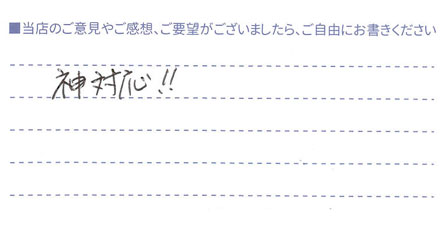 ■当店のご意見やご感想、ご要望がございましたら、ご自由にお書きください
神対応!!